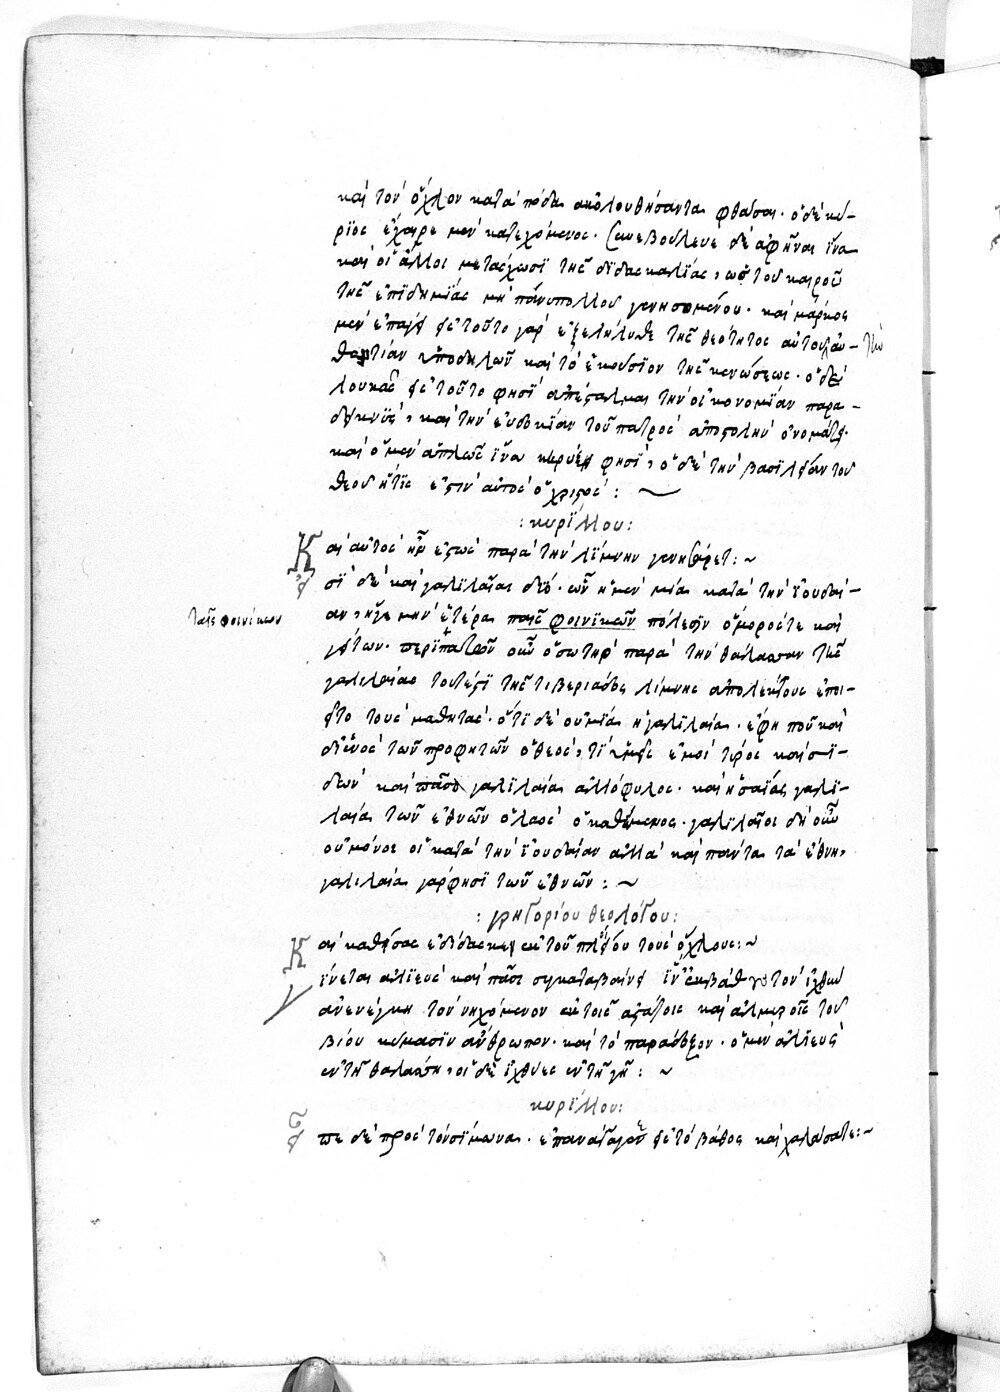 καὶ τὸν ὄχλον κατὰ πόδα ἀκολουθήσαντα φθάσαι· ὁ δὲ κύ-
ριος ἔχαιρε μὲν κατεχόμενος. συνεβούλευε δὲ ἀφῆναι ἵνα
καὶ οἱ ἄλλοι μετάσχωσι τῆς διδασκαλίας, ὡς τοῦ καιροῦ
τῆς ἐπιδημίας μὴ πάνυ πολλοῦ γενησομένου. καὶ μάρκος
μὲν ἐπάγει εἰς τοῦτο γὰρ ἐξελήλυθε τῆς θεότητος αὐτοῦ
ὑποδηλῶν καὶ τὸ ἑκούσιον τῆς κενώσεως· ὁ δὲ
λουκᾶς εἰς τοῦτο φησὶ ἀπέσταλμαι τὴν οἰκονομίαν παρα-
δεικνὺς, καὶ τὴν εὐδοκίαν τοῦ πατρὸς ἀποστολὴν ὀνομάζει.
καὶ ὁ μὲν ἁπλῶς ἵνα κηρύξη φησὶ, ὁ δὲ τὴν βασιλείαν τοῦ
θεοῦ ἥτις ἐστὶν αὐτὸς ὁ χριστός : ~
: κυρίλλου :
Καὶ αὐτὸς ἦν ἑστὼς παρὰ τὴν λίμνην γενησαρέτ : ~
εἰσὶ δὲ καὶ γαλιλαῖαι δύο· ὧν ἡ μὲν μία κατὰ τὴν ἰουδαί-
αν, ἥγε μὴν ἑτέρα παῖς φοινίκων πόλεσιν ὅμορός τε καὶ
γείτων. περιπατῶν οὖν ὁ σωτὴρ παρὰ τὴν θάλασσαν τῆς
γαλιλαίας τουτέστι τῆς τιβεριάδος λίμνης ἀπολέκτους ἐποι-
εῖτο τοὺς μαθητάς· ὅτι δὲ οὐ μία ἡ γαλιλαία. ἔφη που καὶ
δι' ἑνὸς τῶν προφητῶν ὁ θεὸς, τί ὑμεῖς ἐμοὶ τύρος καὶ σι-
δὼν καὶ πᾶσα γαλιλαία ἀλλόφυλος. καὶ ἡσαΐας γαλι-
λαία τῶν ἐθνῶν ὁ λαὸς ὁ καθήμενος. γαλιλαῖοι δὴ οὖν
οὐ μόνοι οἱ κατὰ τὴν ἰουδαίαν ἀλλὰ καὶ πάντα τὰ ἔθνη,
γαλιλαία γὰρ φησὶ τῶν ἐθνῶν : ~
: γρηγορίου θεολόγου :
Καὶ καθήσας ἐδίδασκεν ἐκ τοῦ πλοίου τοὺς ὄχλους : ~
γίνεται ἁλιεὺς καὶ πᾶσι συγκαταβαίνει ἵν' ἐκ βάθους τὸν ἰχθὺν
ἀνενέγκη τὸν νηχόμενον ἐν τοῖς ἀστάτοις καὶ ἁλμυροῖς τοῦ
βίου κύμασιν ἄνθρωπον. καὶ τὸ παράδοξον. ὁ μὲν ἁλιεὺς
ἐν τῇ θαλάσση, οἱ δὲ ἰχθύες ἐν τῇ γῆ : ~
κυρίλλου :
εἶπε δὲ πρὸς τὸν σίμωνα. ἐπανάγαγε εἰς τὸ βάθος καὶ χαλάσατε : ~
ταῖς φοινίκων